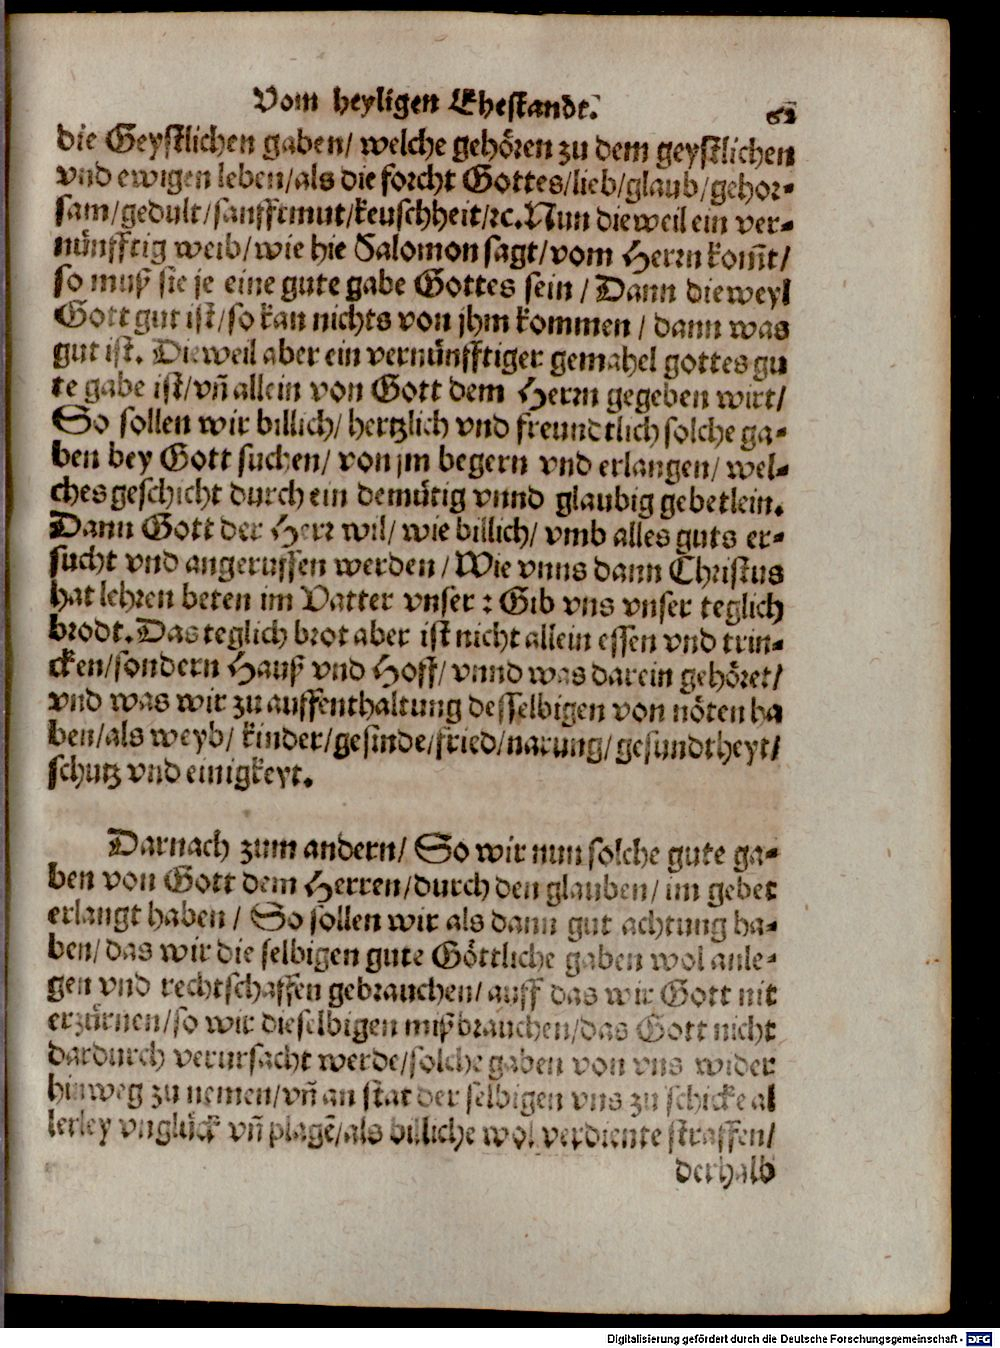 Vom heyligen Ehestandt.
62
die Geystlichen gaben/ welche gehören zu dem geystlichen
vnd ewigen leben/als die forcht Gottes/lieb/glaub/gehor-
sam/gedult/sanfftmut/keuschheit/ꝛc. Nun dieweil ein ver-
nünfftig weib/wie hie Salomon sagt/vom Herrn kom̃t/
so muß sie je eine gute gabe Gottes sein/ Dann dieweyl
Gott gut ist/so kan nichts von jhm kommen/ dann was
gut ist. Dieweil aber ein vernünfftiger gemahel gottes gu
te gabe ist/vñ allein von Gott dem Herrn gegeben wirt/
So sollen wir billich/ hertzlich vnd freundtlich solche ga-
ben bey Gott suchen/ von jm begern vnd erlangen/ wel-
ches geschicht durch ein demütig vnnd glaubig gebetlein.
Dann Gott der Herr wil/ wie billich/ vmb alles guts er-
sucht vnd angeruffen werden/ Wie vnns dann Christus
hat lehren beten im Vatter vnser: Gib vns vnser teglich
brodt. Das teglich brot aber ist nicht allein essen vnd trin-
cken/sondern Hauß vnd Hoff/ vnnd was darein gehöret/
vnd was wir zu auffenthaltung desselbigen von nöten ha
ben/als weyb/ kinder/gesinde/fried/narung/gesundtheyt/
schutz vnd einigkeyt.
Darnach zum andern/ So wir nun solche gute ga-
ben von Gott dem Herren/durch den glauben/ im gebet
erlangt haben/ So sollen wir als dann gut achtung ha-
ben/das wir die selbigen gute Göttliche gaben wol anle-
gen vnd rechtschaffen gebrauchen/ auff das wir Gott nit
erzürnen/so wir dieselbigen mißbrauchen/das Gott nicht
dardurch verursacht werde/solche gaben von vns wider
hinweg zu nemen/vñ an stat der selbigen vns zu schicke al
lerley vnglück vñ plagẽ/als billiche wol verdiente straffen/
derhalb
Digitalisierung gefördert durch die Deutsche Forschungsgemeinschaft - DFG